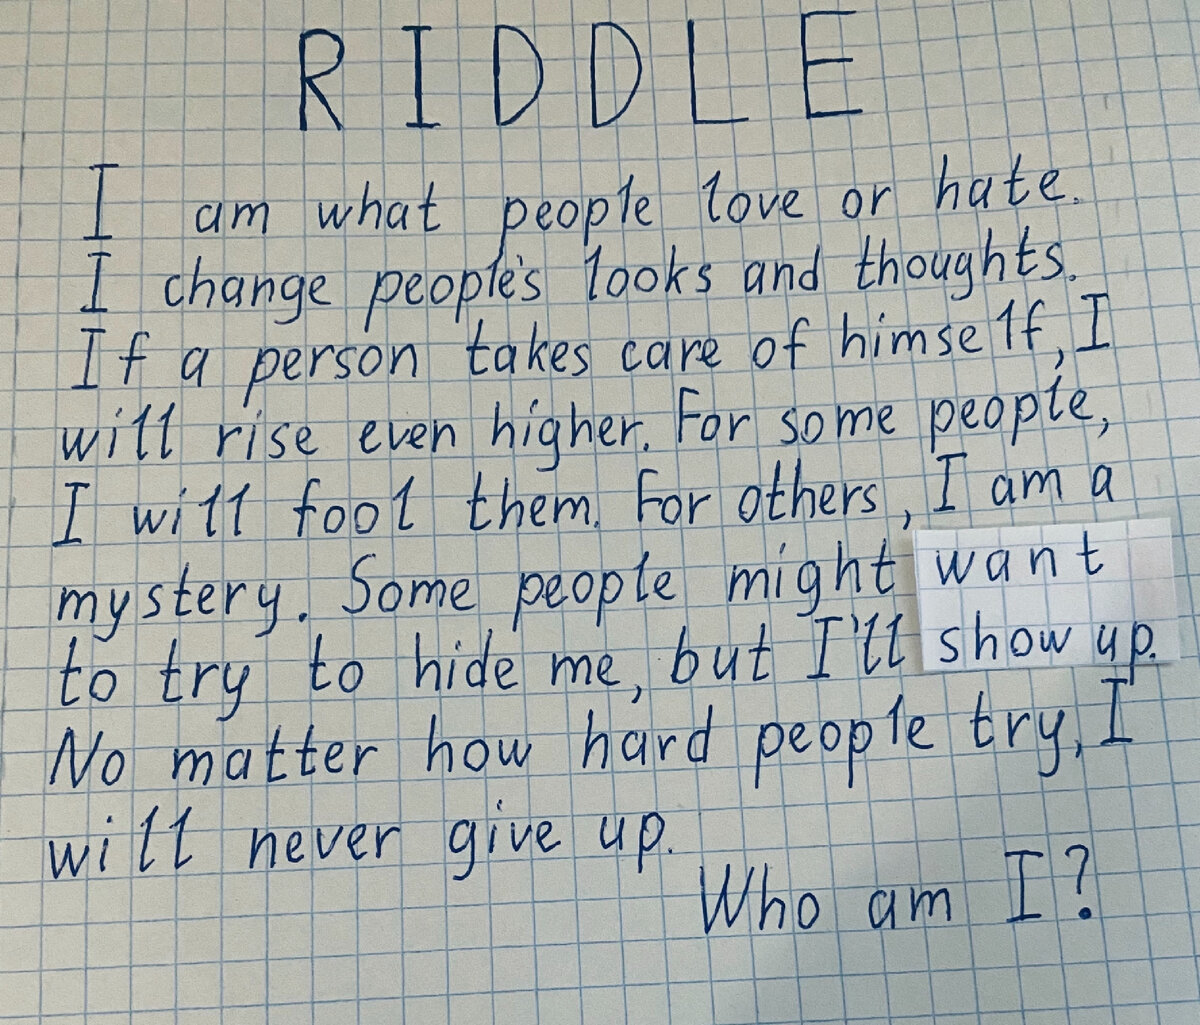 RIDDLE
I am what people love or hate.
I change people's looks and thoughts.
If a person takes care of himself, I
will rise even higher. For some people,
I will fool them. For others, I am a
mystery. Some people might want
to try to hide me, but I'll show up.
No matter how hard people try, I
will never give up.
Who am I?